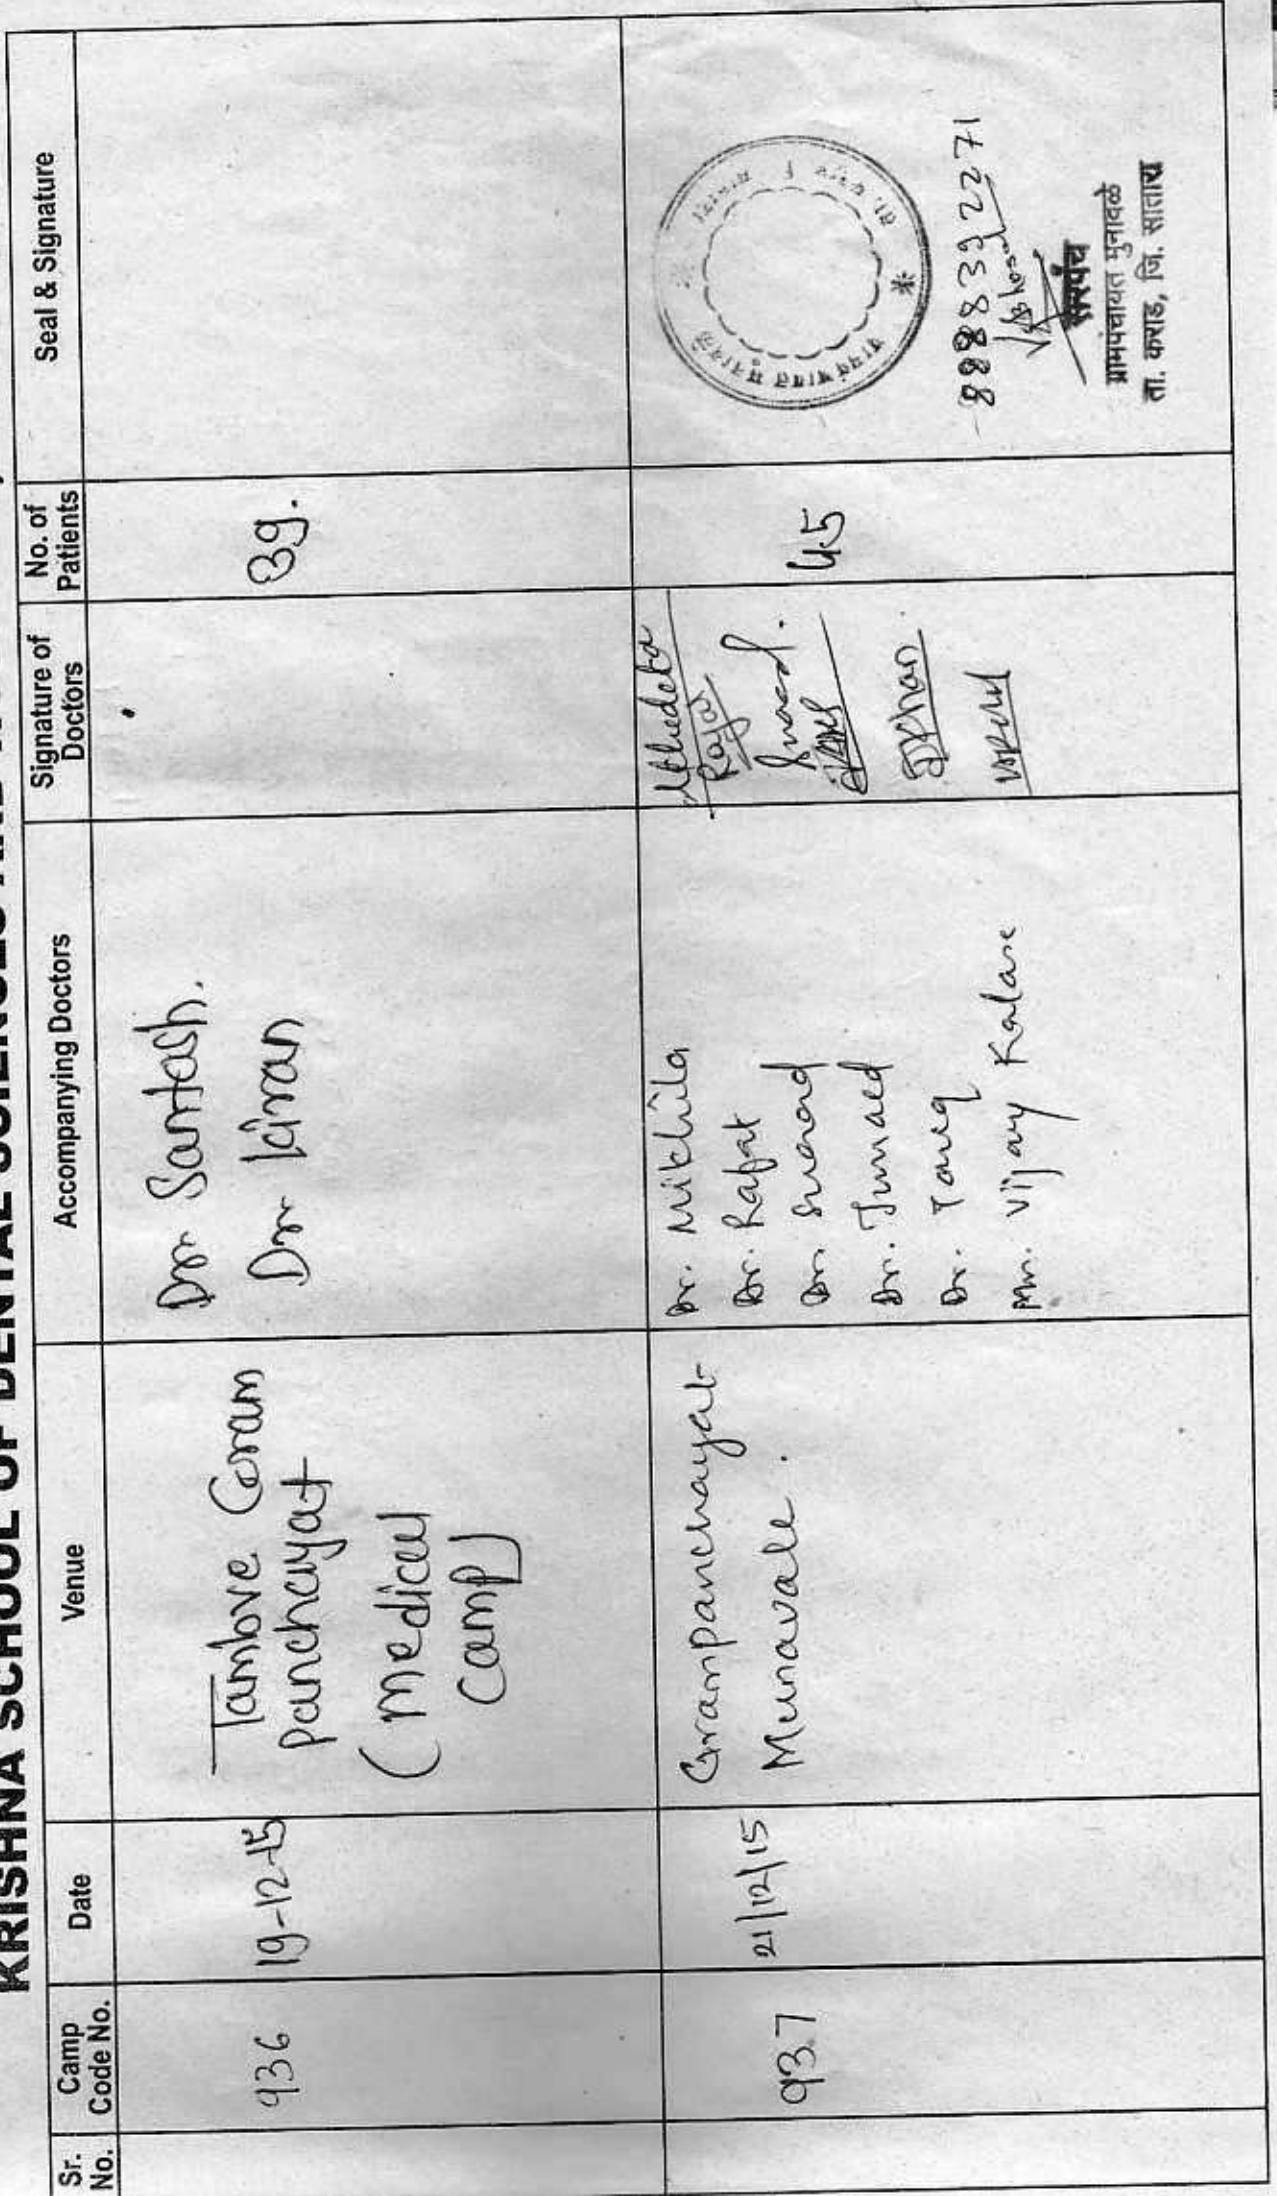 KRISHNA SCHOOL OF DENTAL SCIENCES AND
Sr. No.
Camp Code No.
Date
Venue
Accompanying Doctors
Signature of Doctors
No. of Patients
Seal & Signature
936
19-12-15
Tambve Gram
panchayat
(medical
camp)
Dr Santosh.
Dr Kiran
39.
937
21/12/15
Grampanchayat
Munavale.
Dr. Mikhila
Dr. Rafat
Dr.
Dr. Junaed
Dr. Tariq
Mr. Vijay Kalane
Rafat
JKhan
45
8888392271
सरपंच
ग्रामपंचायत मुनावळे
ता. कराड, जि. सातारा